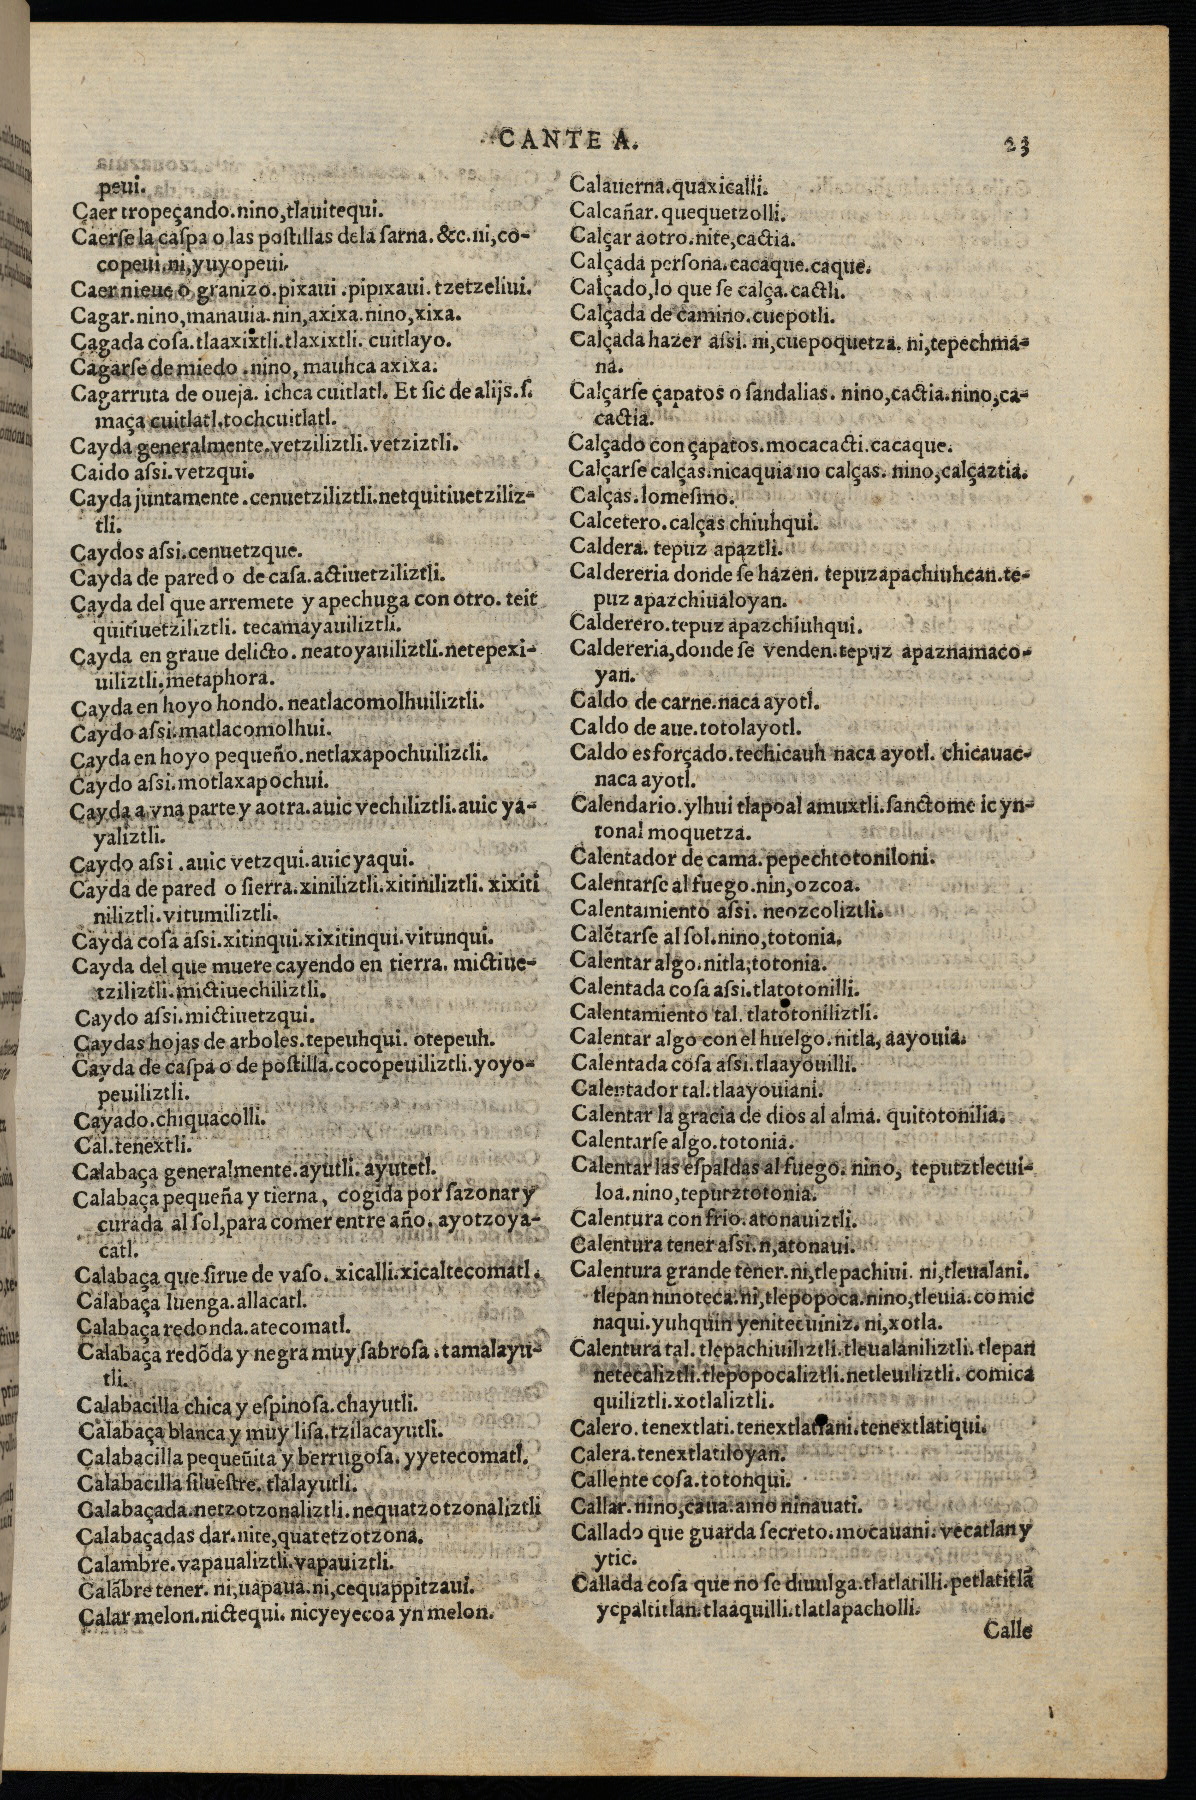 CANTE A.
23
peui.
Caer tropeçando.nino,tlauitequi.
Caerſe la caſpa o las poſtillas dela ſarna.&c.ni,co-
copeui.ni,yuyopeui.
Caer nieue o granizo.pixaui .pipixaui. tzetzeliui.
Cagar.nino,manauia.nin,axixa.nino,xixa.
Cagada coſa.tlaaxixtli.tlaxixtli. cuitlayo.
Cagarſe de miedo .nino, mauhca axixa.
Cagarruta de oueja. ichca cuitlatl. Et ſic de alijs.ſ.
maça cuitlatl.tochcuitlatl.
Cayda generalmente.vetziliztli.vetziztli.
Caido aſsi.vetzqui.
Cayda juntamente.cenuetziliztli.netquitiuetziliz-
tli.
Caydos aſsi.cenuetzque.
Cayda de pared o de caſa.actiuetziliztli.
Cayda del que arremete y apechuga con otro. teit
quitiuetziliztli. tecamayauiliztli.
Cayda en graue delicto. neatoyauiliztli.netepexi-
uiliztli.metaphora.
Cayda en hoyo hondo. neatlacomolhuiliztli.
Caydo aſsi.matlacomolhui.
Cayda en hoyo pequeño.netlaxapochuiliztli.
Caydo aſsi.motlaxapochui.
Cayda a vna parte y aotra.auic vechiliztli.auic ya-
yaliztli.
Caydo aſsi .auic vetzqui.auic yaqui.
Cayda de pared o ſierra.xiniliztli.xitiniliztli. xixiti
niliztli.vitumiliztli.
Cayda coſa aſsi.xitinqui.xixitinqui.vitunqui.
Cayda del que muere cayendo en tierra. mictiue-
tziliztli.mictiuechiliztli.
Caydo aſsi.mictiuetzqui.
Caydas hojas de arboles.tepeuhqui. otepeuh.
Cayda de caſpa o de poſtilla.cocopeuiliztli.yoyo-
peuiliztli.
Cayado.chiquacolli.
Cal.tenextli.
Calabaça generalmente.ayutli. ayutetl.
Calabaça pequeña y tierna, cogida por ſazonar y
curada al ſol,para comer entre año. ayotzoya-
catl.
Calabaça que ſirue de vaſo. xicalli.xicaltecomatl.
Calabaça luenga.allacatl.
Calabaça redonda.atecomatl.
Calabaça redõda y negra muy ſabroſa .tamalayu-
tli.
Calabacilla chica y eſpinoſa.chayutli.
Calabaça blanca y muy liſa.tzilacayutli.
Calabacilla pequeñita y berrugoſa.yyetecomatl.
Calabacilla ſilueſtre. tlalayutli.
Calabaçada.netzotzonaliztli.nequatzotzonaliztli
Calabaçadas dar.nite,quatetzotzona.
Calambre.vapaualiztli.vapauiztli.
Calãbre tener. ni,uapaua.ni,cequappitzaui.
Calar melon.nictequi. nicyeyecoa yn melon.
Calauerna.quaxicalli.
Calcañar. quequetzolli.
Calçar aotro.nite,cactia.
Calçada perſona.cacaque.caque.
Calçado,lo que ſe calça.cactli.
Calçada de camino.cuepotli.
Calçada hazer aſsi. ni,cuepoquetza. ni,tepechma-
na.
Calçarſe çapatos o ſandalias. nino,cactia.nino,ca-
cactia.
Calçado con çapatos.mocacacti.cacaque.
Calçarſe calças.nicaquia no calças. nino,calçaztia.
Calças.lomeſmo.
Calcetero.calças chiuhqui.
Caldera. tepuz apaztli.
Caldereria donde ſe hazen. tepuzapachiuhcan.te-
puz apazchiualoyan.
Calderero.tepuz apazchiuhqui.
Caldereria,donde ſe venden.tepuz apaznamaco-
yan.
Caldo de carne.naca ayotl.
Caldo de aue.totolayotl.
Caldo esforçado.techicauh naca ayotl. chicauac-
naca ayotl.
Calendario.ylhui tlapoal amuxtli.ſanctome ic yn-
tonal moquetza.
Calentador de cama. pepechtotoniloni.
Calentarſe al fuego.nin,ozcoa.
Calentamiento aſsi. neozcoliztli.
Calẽtarſe al ſol.nino,totonia.
Calentar algo.nitla,totonia.
Calentada coſa aſsi.tlatotonilli.
Calentamiento tal. tlatotoniliztli.
Calentar algo con el huelgo.nitla, aayouia.
Calentada coſa aſsi.tlaayouilli.
Calentador tal.tlaayouiani.
Calentar la gracia de dios al alma. quitotonilia.
Calentarſe algo.totonia.
Calentar las eſpaldas al fuego. nino, teputztlecui-
loa.nino,teputztotonia.
Calentura con frio.atonauiztli.
Calentura tener aſsi.n,atonaui.
Calentura grande tener.ni,tlepachiui. ni,tleualani.
tlepan ninoteca.ni,tlepopoca.nino,tleuia.comic
naqui.yuhquin yenitecuiniz. ni,xotla.
Calentura tal. tlepachiuiliztli.tleualaniliztli.tlepan
netecaliztli.tlepopocaliztli.netleuiliztli. comica
quiliztli.xotlaliztli.
Calero.tenextlati.tenextlatiani.tenextlatiqui.
Calera.tenextlatiloyan.
Callente coſa.totonqui.
Callar.nino,caua.amo ninauati.
Callado que guarda ſecreto.mocauani. vecatlan y
ytic.
Callada coſa que no ſe diuulga.tlatlatilli.petlatitlã
ycpaltitlan.tlaaquilli.tlatlapacholli.
Calle